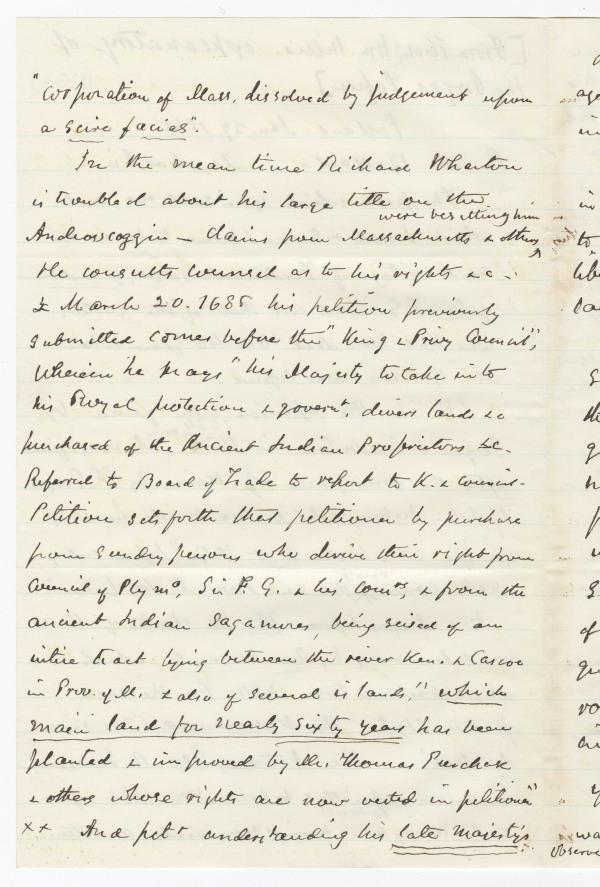 "Corporation of Mass. dissolved by judgement upon
a scire facias".
In the mean time Richard Wharton
is troubled about his large title on the
were besetting him
Androscoggin — Claims from Massachusetts & others
He consults counsel as to his rights &c.
& March 20. 1685 his petition previously
submitted comes before the "King & Privy Council",
wherein he prays "his Majesty to take into
his Royal protection & govert, divers lands &c
purchased of the Ancient Indian Proprietors &c.
Referred to Board of Trade to report to K. & council-
Petition sets forth that petitioner by purchase
from sundry persons who derive their right from
Council of Plymo, Sir F. G. & his comrs, & from the
ancient Indian Sagamores, being seised of an
intire tract lying between the river Ken. & Casco
in Prov. of M. & also of several islands," which
main land for nearly sixty years has been
planted & improved by Mr. Thomas Purchase
& others whose rights are now vested in petitioner"
xx And petr understanding his late majesty's
age
in
in
to
of
wa
observe